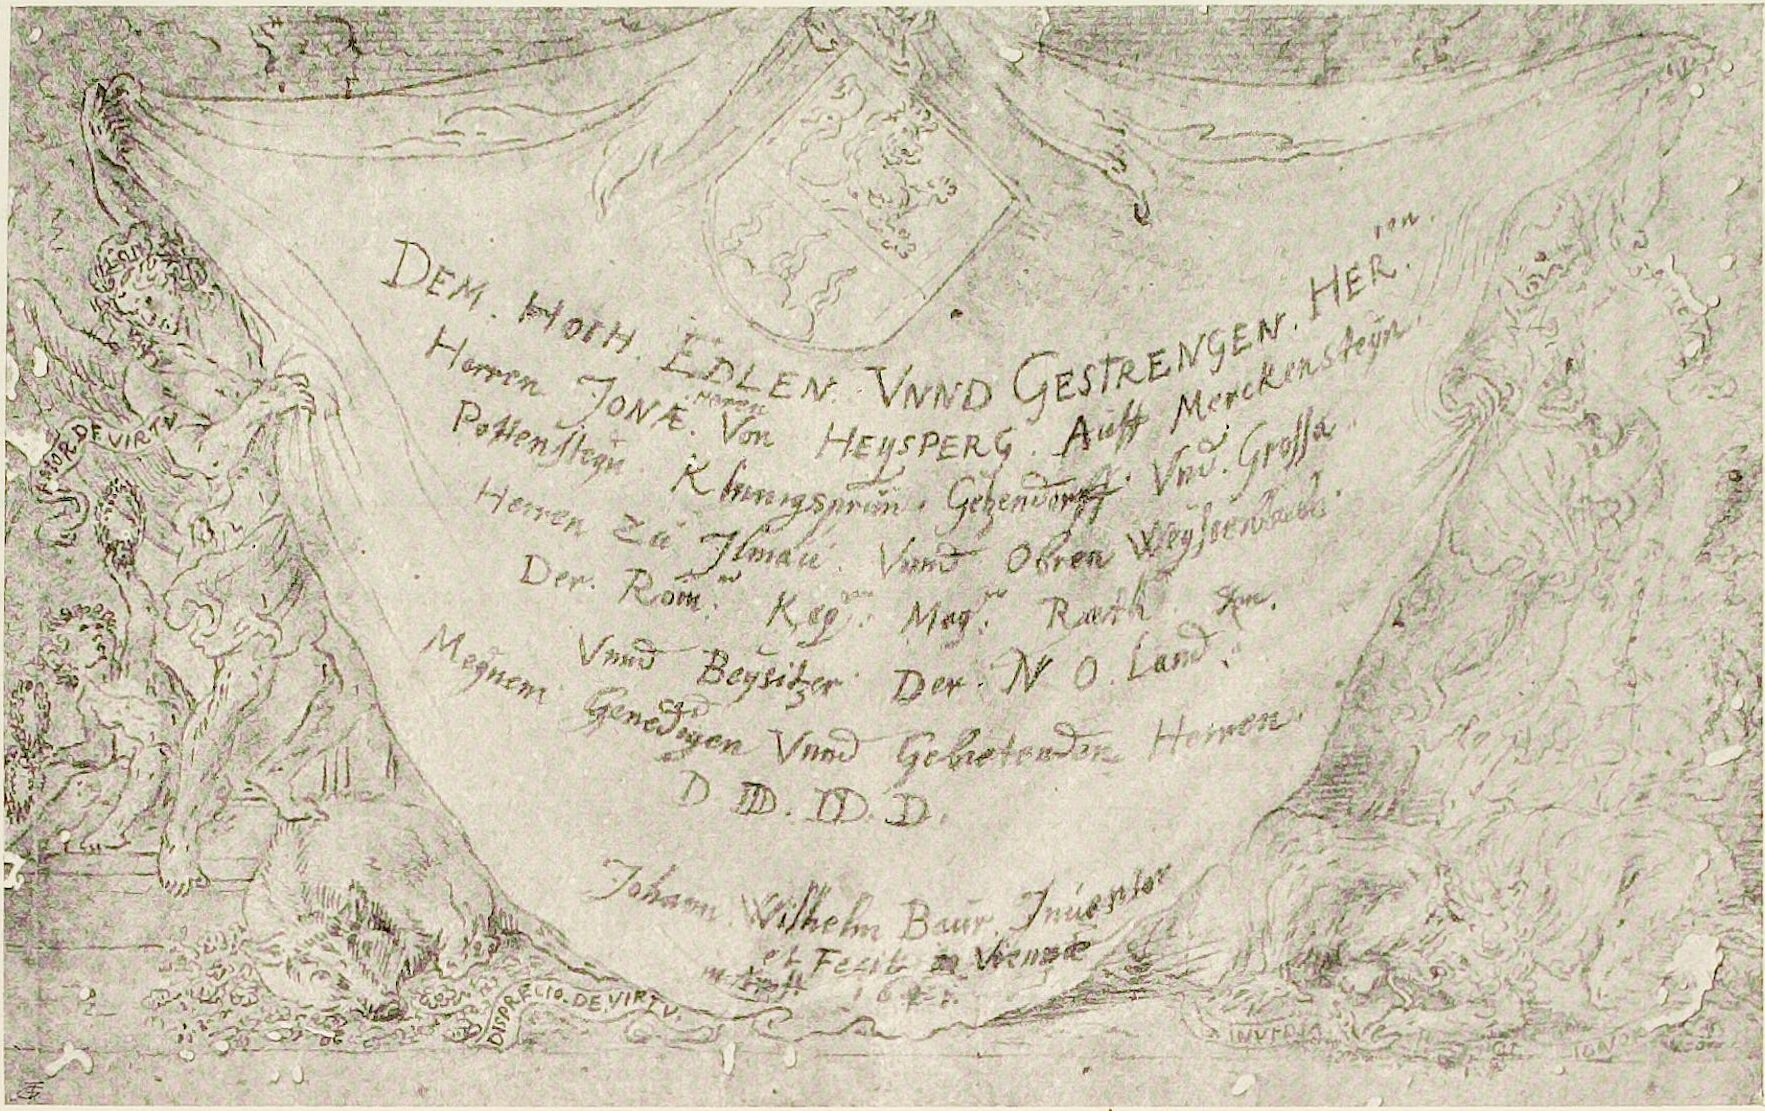 DEM. HOCH. EDLEN. VNND GESTRENGEN. HER.ren.
Herren JONÆ. Von HEYSPERG. Auff Merckensteyn.
Pottensteyn. Gehendorff. Vnd. Grossa
Herren Zu Ilmau. Vnnd Obren
Der. Röm. Key. May. Rath
Vnnd Beysitzer Der. N O. Land.
Meynem Genedigen Vnnd Gebietenden Herren.
D DD. DD. D.
Johann Wilhelm Baur. Inuentor
et Fecit
AMOR. DE VIRTV
DISPRÆCIO. DE. VIRTV.
INVIDIA